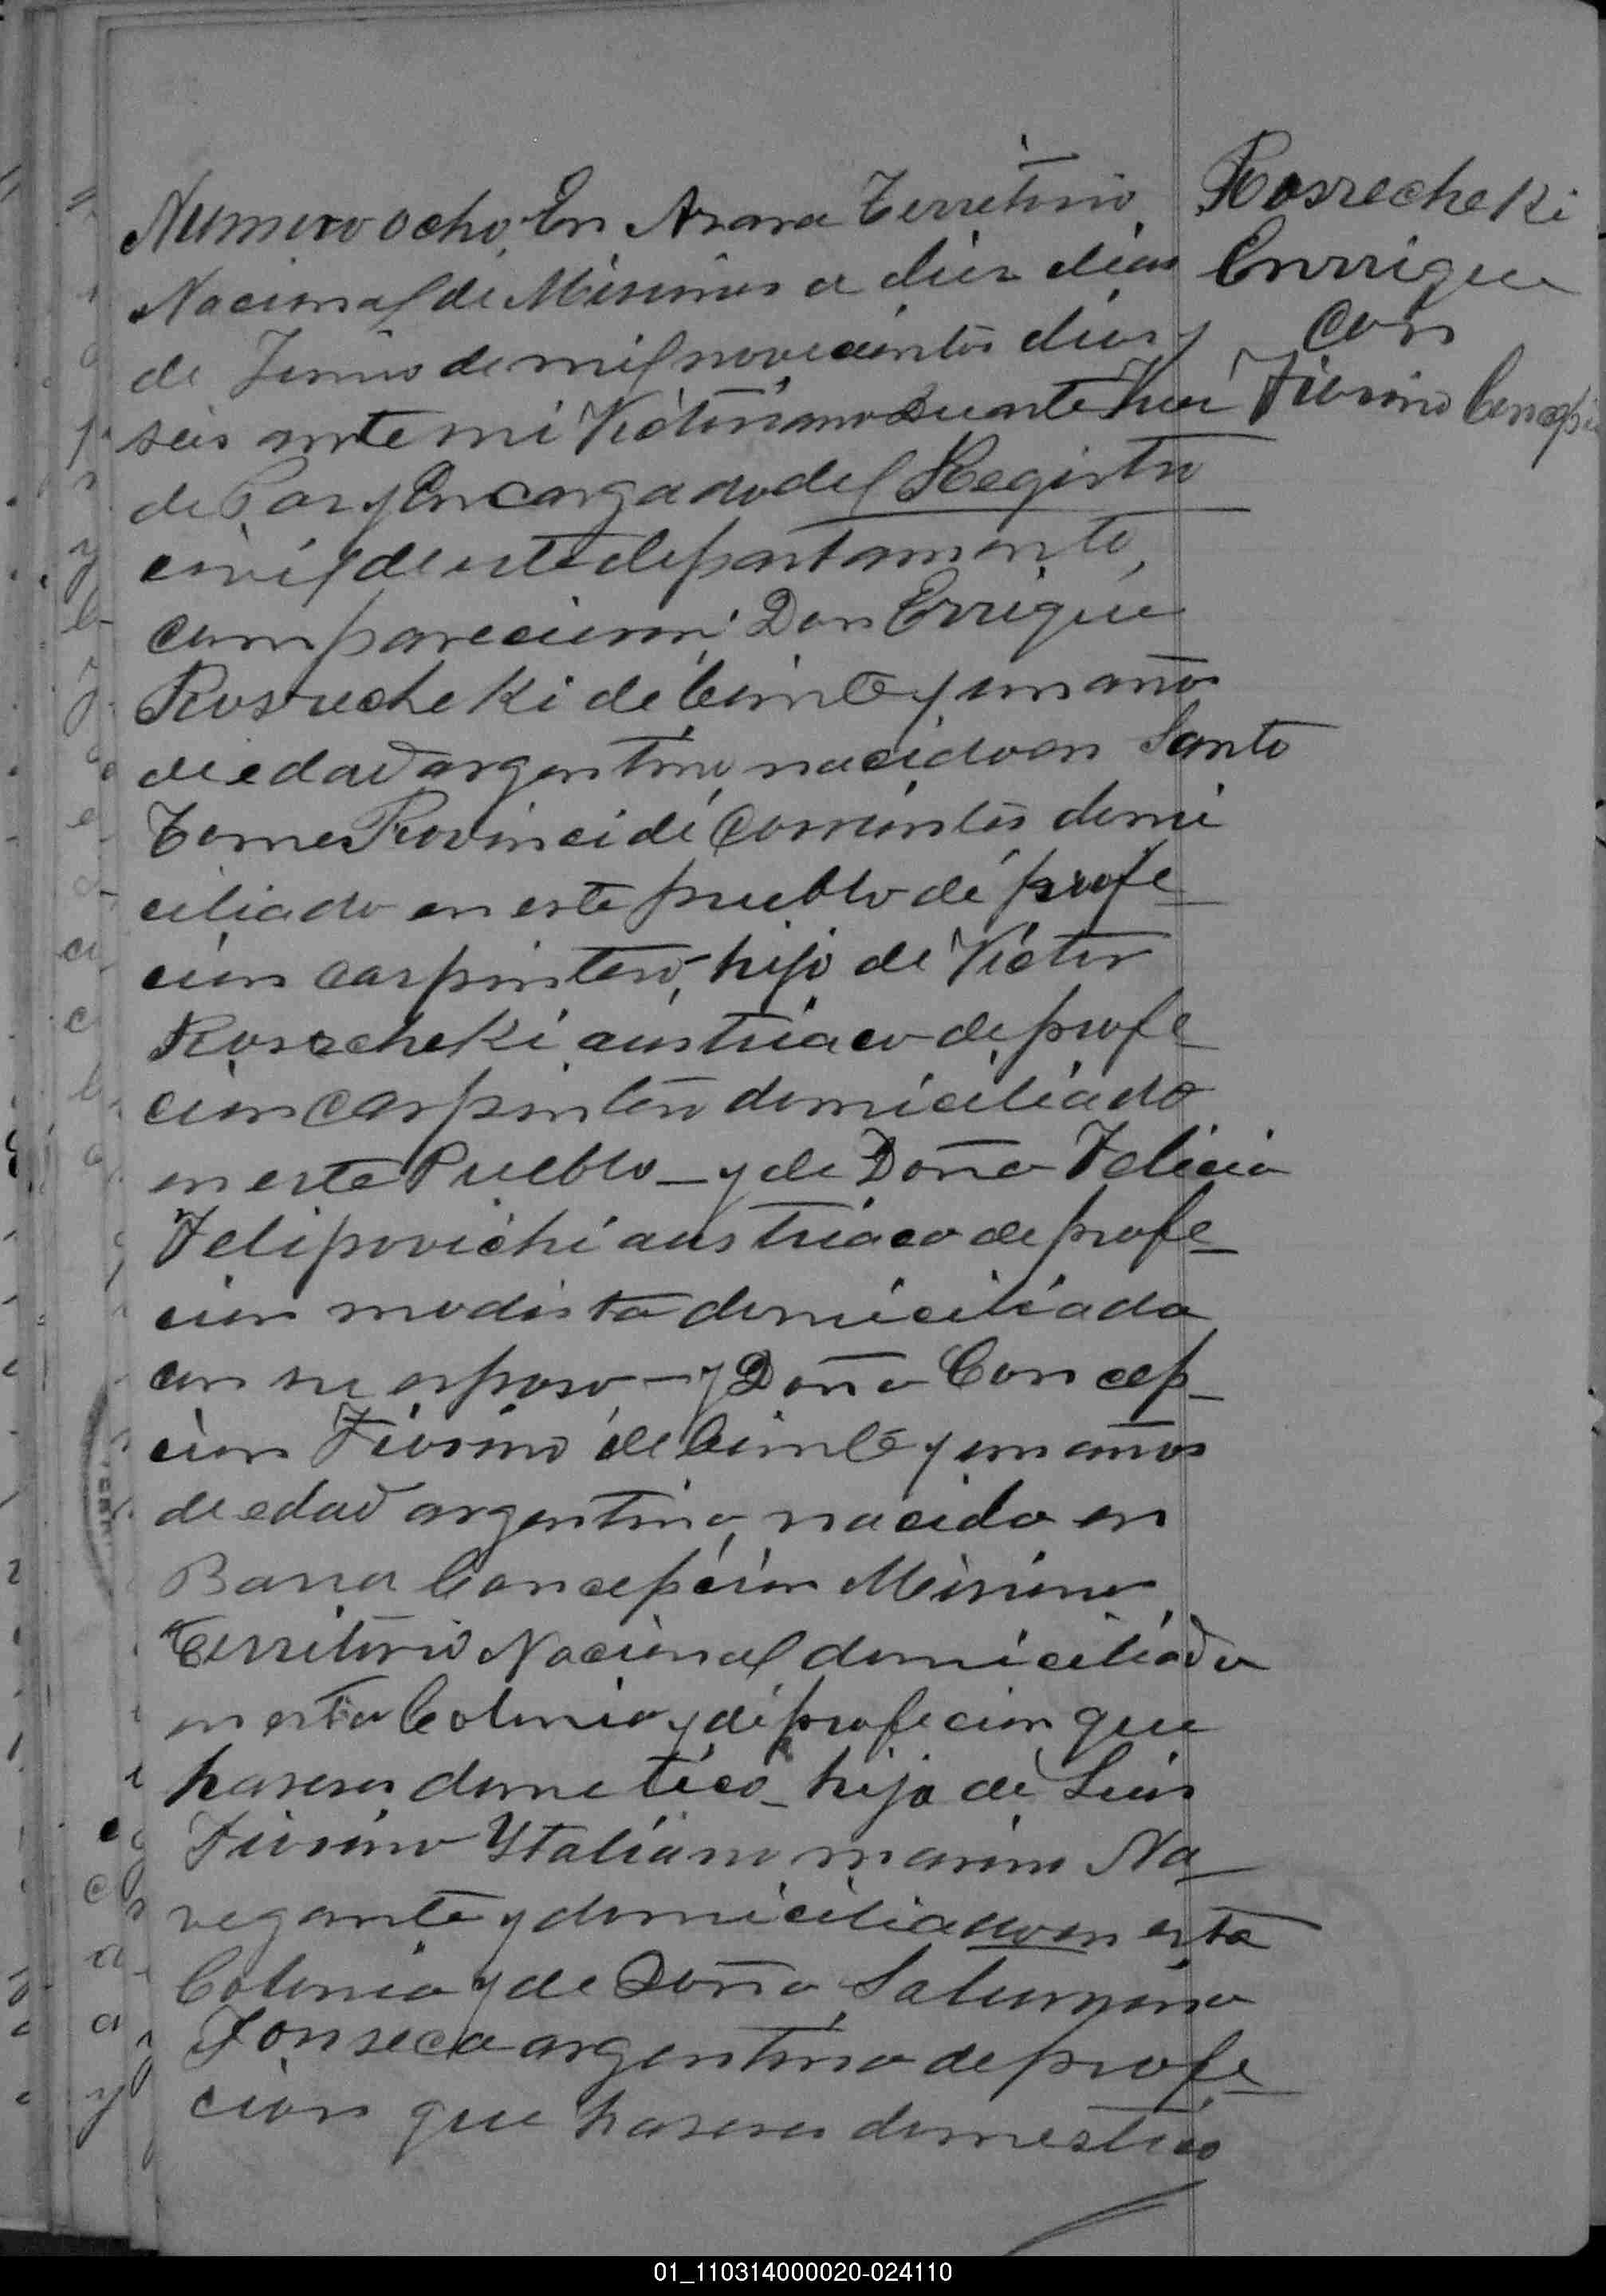 Numero ocho, En Azara Territorio
Nacional de Misiones a diez dias
de Junio de mil novecientos diez y
seis ante mi Victoriano Duarte Juez
de Paz y Encargado del Registro
civil de este departamento,
comparecieron; Don Errique
Rosrecheki de beinte y un años
de edad argentino, nacido en Santo
Tome Provinci de Corrientes domi
ciliado en este pueblo de profe_
cion carpintero, hijo de Victor
Rosrecheki austriaco de profe_
cion carpintero domiciliado
en este Pueblo _ y de Doña Felicia
Felipovichi austriaca de profe_
cion modista domiciliada
con su esposo _ y Doña Concep_
cion Fiorino de beinte y un años
de edad argentina, nacida en
Barra Concepcion Misiones
Territorio Nacional domiciliada
en esta Colonia y de profecion que
haseres dometico _ hija de Luis
Fiorino Ytaliano marino Na_
vegante y domiciliado en esta
Colonia y de Doña Saturnina
Fonseca argentina de profe_
cion que haseres domestico
Rosrecheki
Enrrique
con
Fiorino